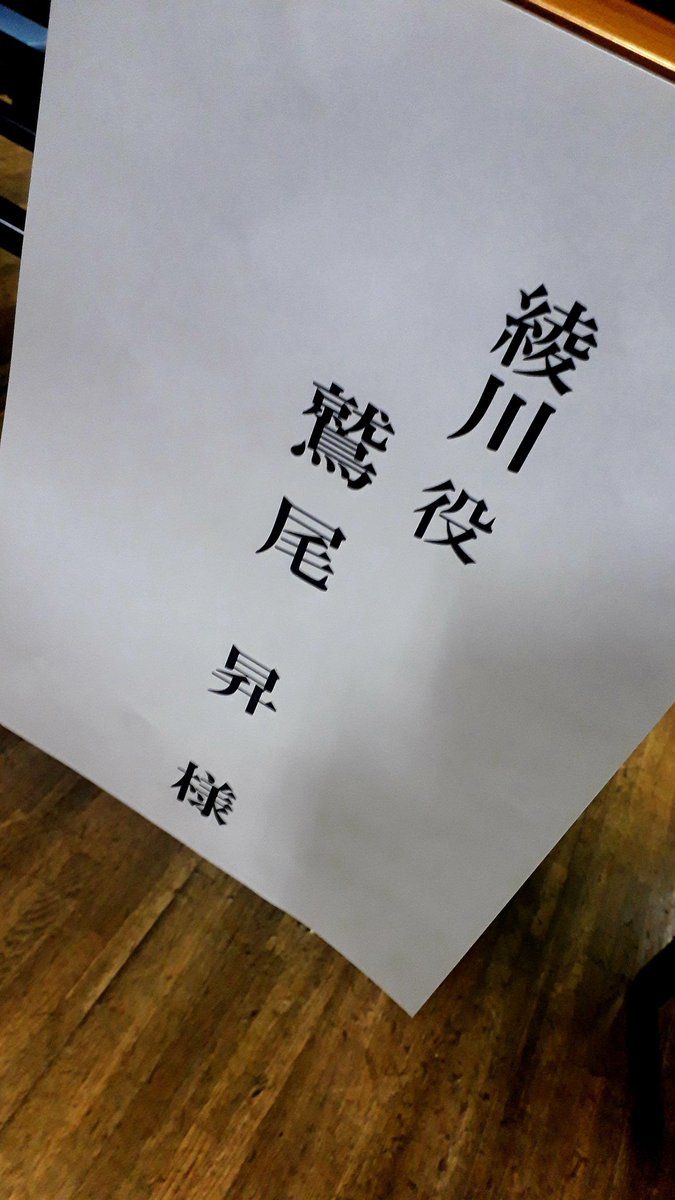 綾川役
鷲尾 昇 様